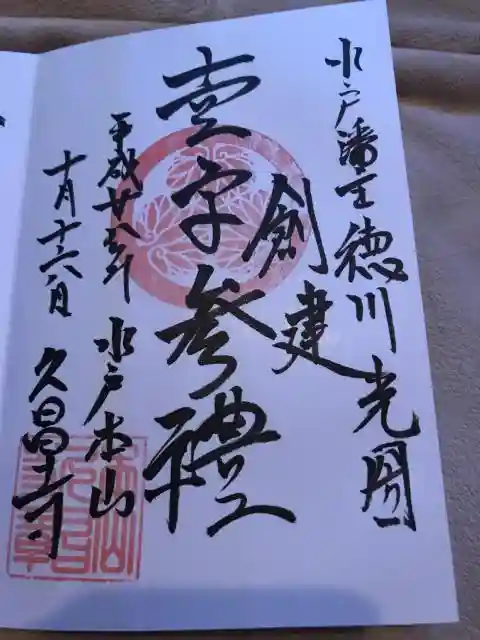 水戸藩主徳川光圀
創建
壹字参禮
平成廿八年
十月十六日
水戸本山
久昌寺